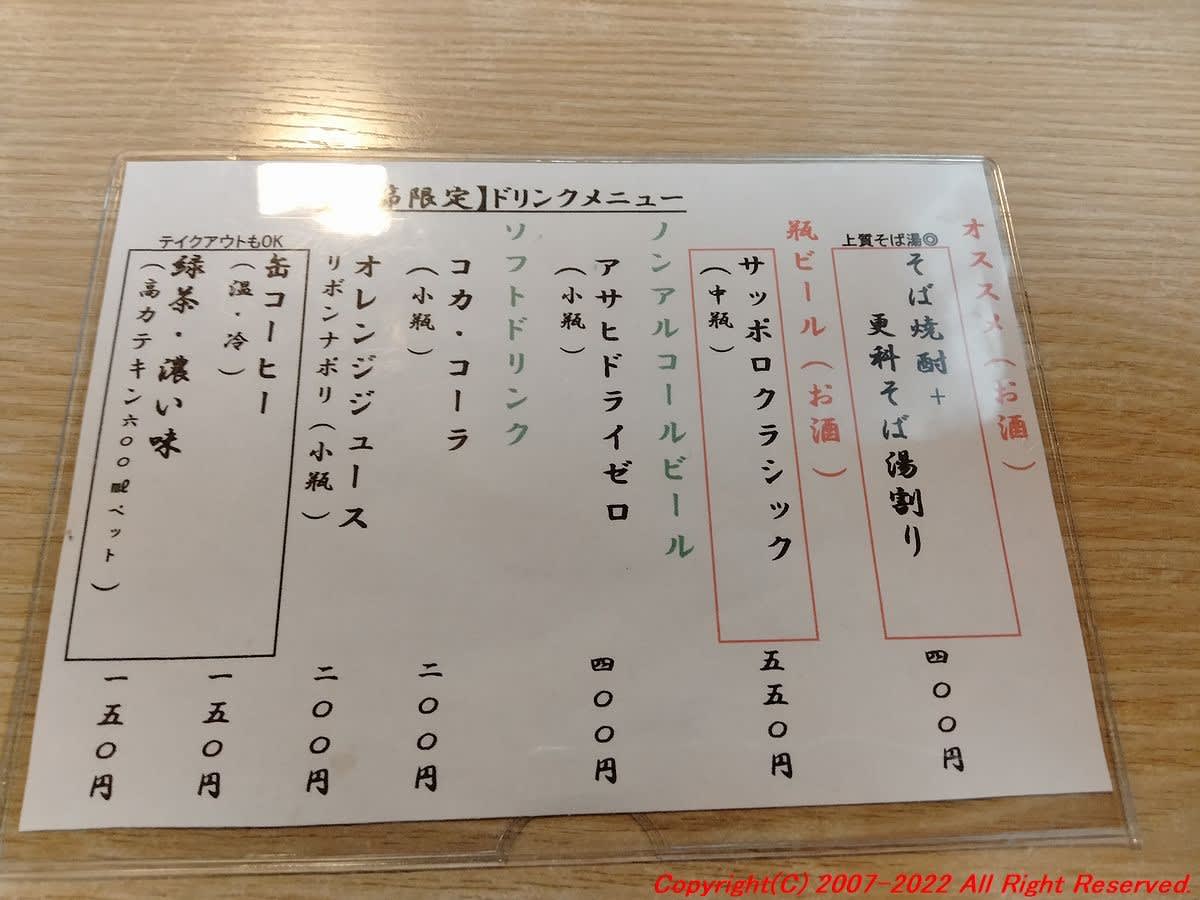 限定】ドリンクメニュー
オススメ(お酒)
上質そば湯◎
そば焼酎+
更科そば湯割り
四〇〇円
瓶ビール(お酒)
サッポロクラシック
(中瓶)
五五〇円
ノンアルコールビール
アサヒドライゼロ
(小瓶)
四〇〇円
ソフトドリンク
コカ・コーラ
(小瓶)
二〇〇円
オレンジジュース
リボンナポリ(小瓶)
二〇〇円
テイクアウトもOK
缶コーヒー
(温・冷)
一五〇円
緑茶・濃い味
(高カテキン六〇〇㎖ペット)
一五〇円
Copyright(C) 2007-2022 All Right Reserved.